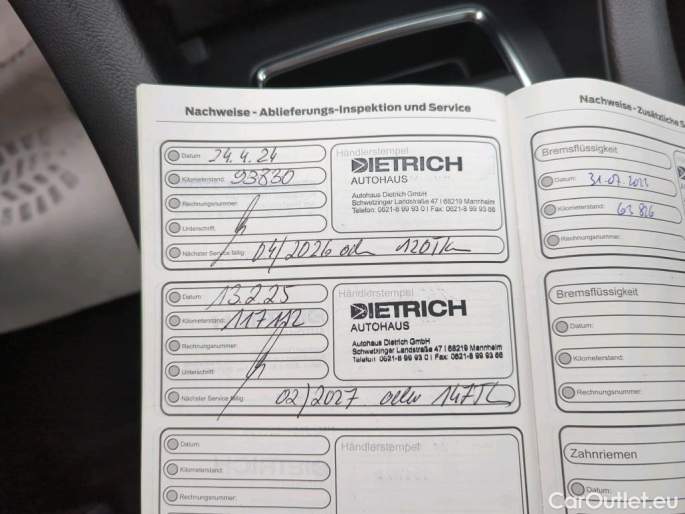 Nachweise - Ablieferungs-Inspektion und Service
Datum: 24.4.24
Kilometerstand: 93830
Rechnungsnummer:
Unterschrift:
Nächster Service fällig: 04/2026 oder 120Tkm
Händlerstempel
DIETRICH
AUTOHAUS
Autohaus Dietrich GmbH
Schwetzinger Landstraße 47 I 68219 Mannheim
Telefon: 0621-8 99 93 0 I Fax: 0621-8 99 93 66
Datum: 13.2.25
Kilometerstand: 117112
Rechnungsnummer:
Unterschrift:
Nächster Service fällig: 02/2027 oder 147Tkm
Händlerstempel
DIETRICH
AUTOHAUS
Autohaus Dietrich GmbH
Schwetzinger Landstraße 47 I 68219 Mannheim
Telefon: 0621-8 99 93 0 I Fax: 0621-8 99 93 66
Datum:
Kilometerstand:
Rechnungsnummer:
Händlerstempel
DIETRICH
Nachweise - Zusätzliche S
Bremsflüssigkeit
Datum:
Kilometerstand: 63 826
Rechnungsnummer:
Bremsflüssigkeit
Datum:
Kilometerstand:
Rechnungsnummer:
Zahnriemen
Datum:
CarOutlet.eu